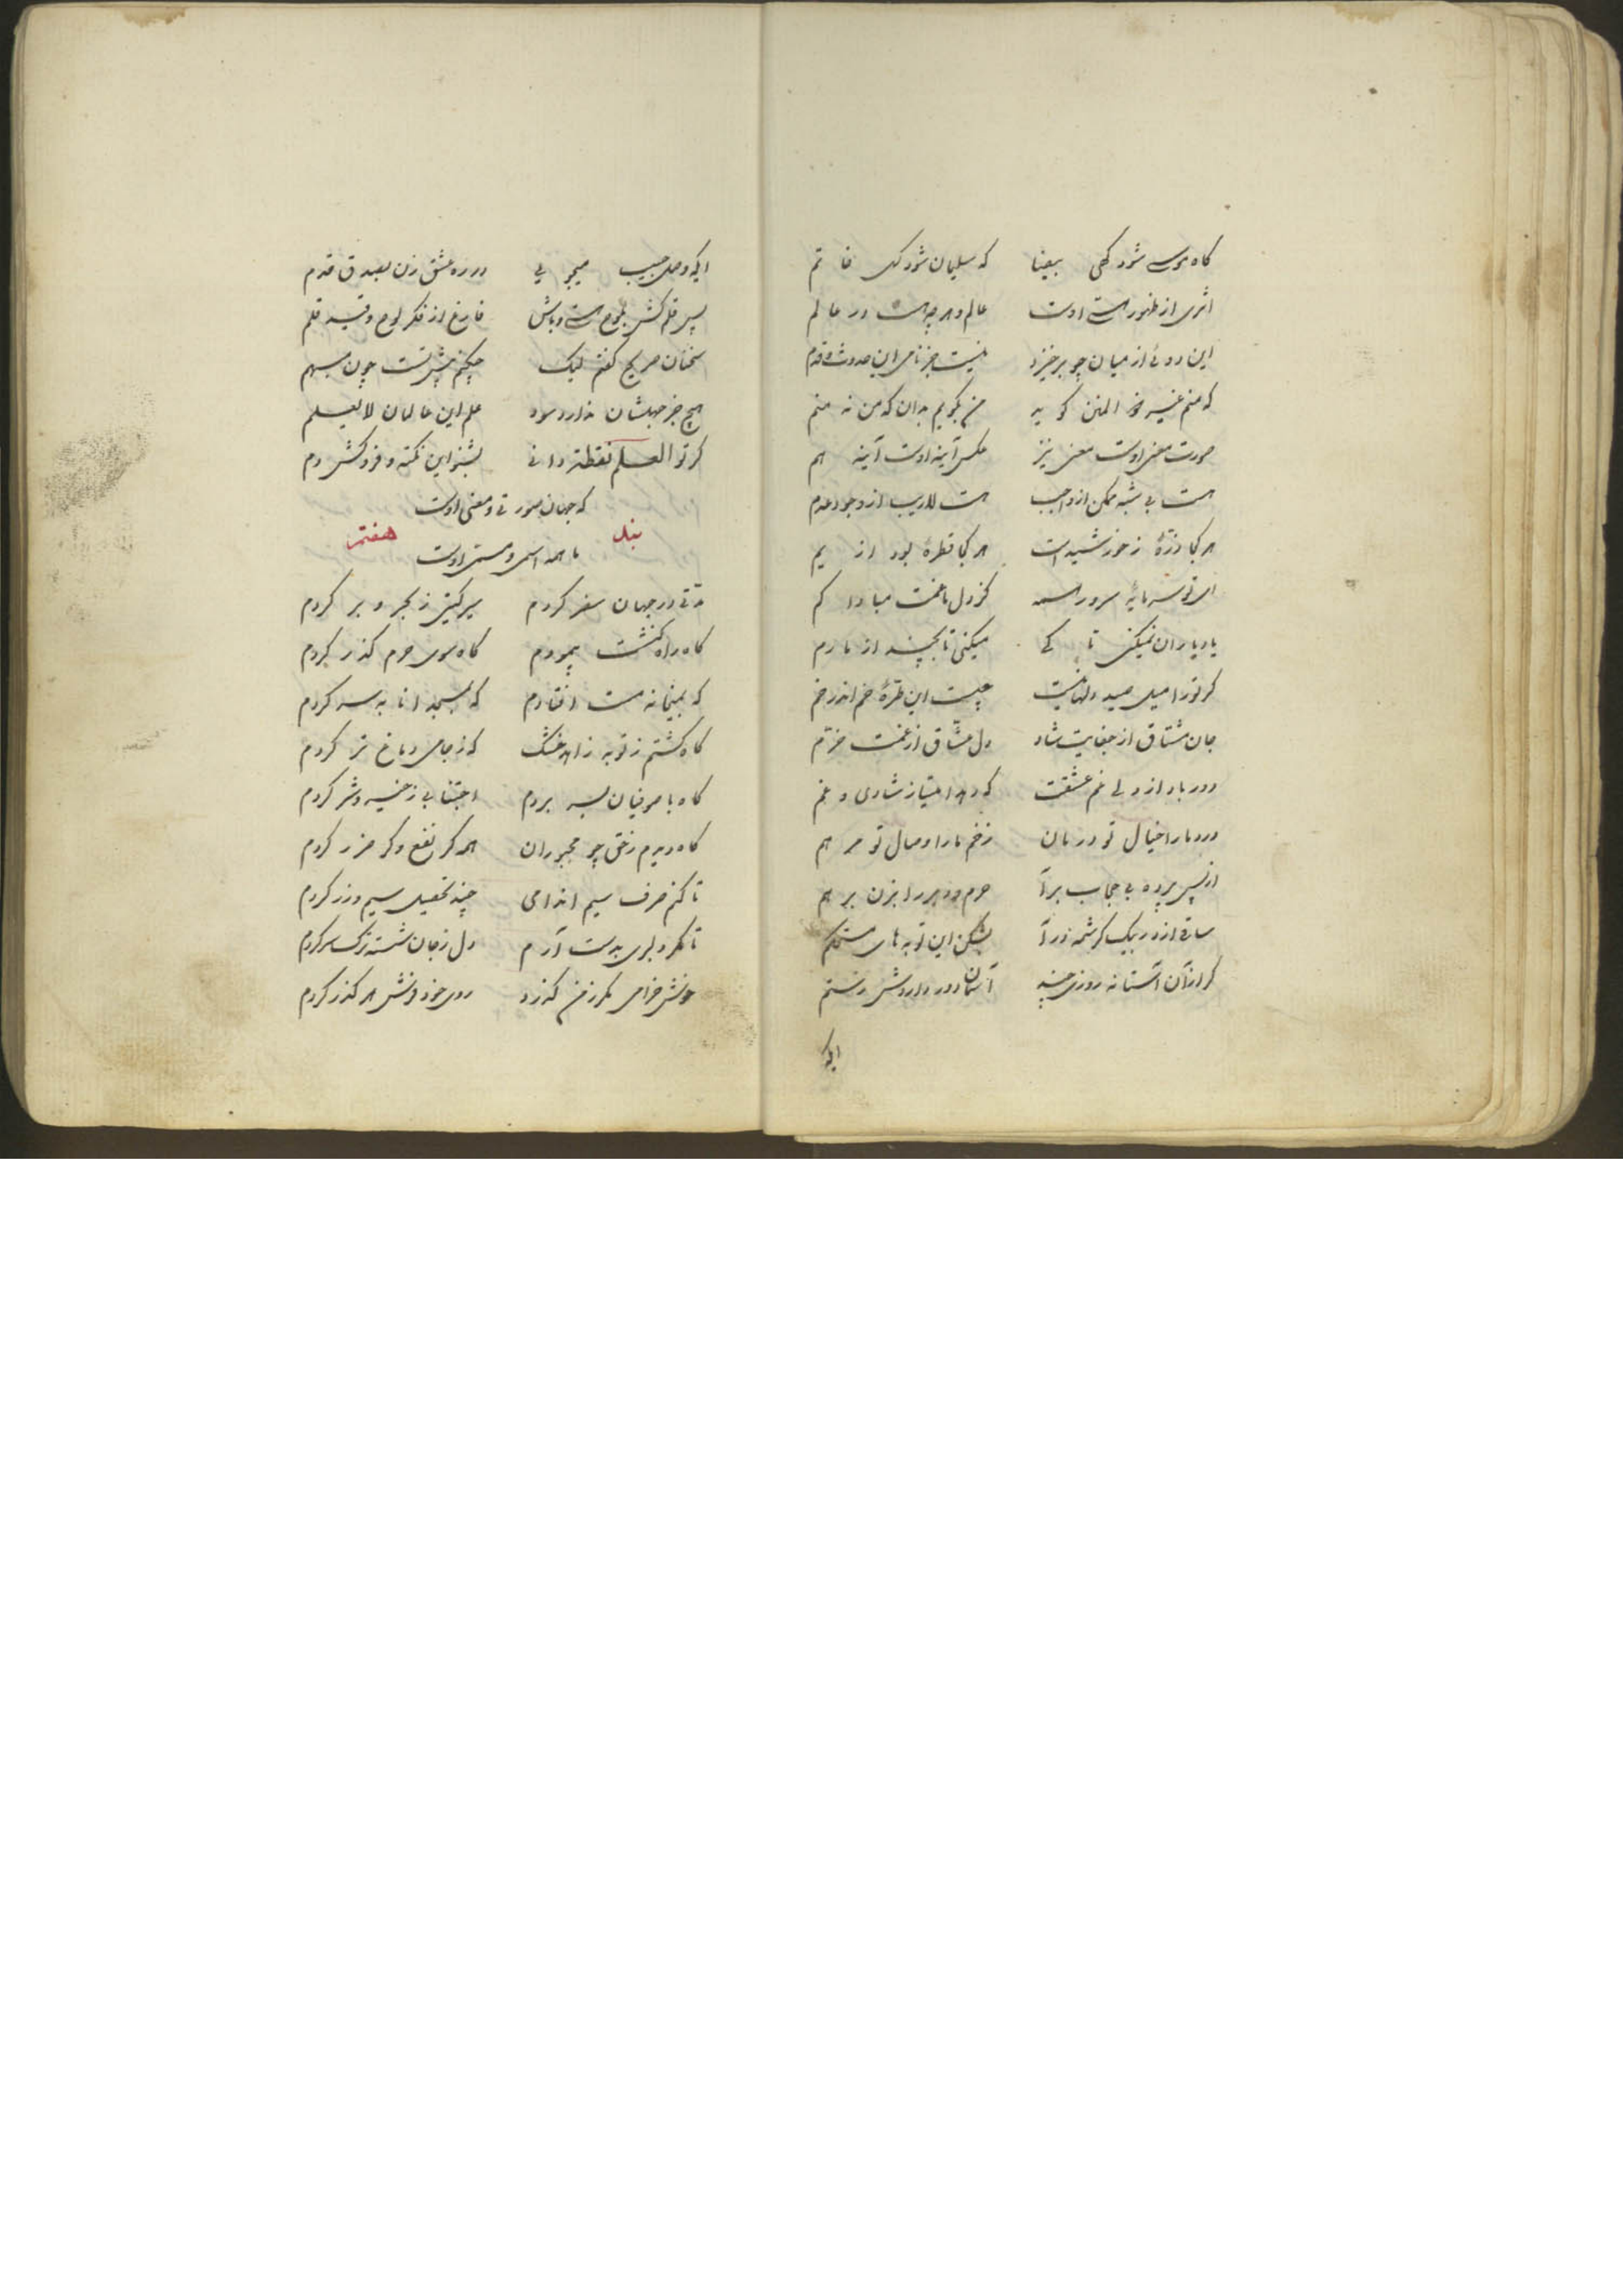 کاه موسی شود کهی بیضا که سلیمان شود کهی خاتم
اثری از ظهور هستی اوست عالم و هر چه هست در عالم
این دوئی از میان چو برخیزد نیست جز نامی این حدوث و قدم
که منم غیر کوید من بکویم بدان که من نه منم
صورت معنی اوست معنی نیز عکس آینه اوست آینه هم
هست بی شبه ممکن از واجب هست لاریب از وجود عدم
هر کجا ذرهٔ ز خورشید است هر کجا قطرهٔ بود از یم
ای تو سرمایهٔ سرور همه کز دل ما غمت مبادا کم
یاد یاران نمیکنی تا کی میکنی تا بچند از ما رم
کر تو را میل صید دلها نیست چیست این طرهٔ خم اندر خم
جان مشتاق از جفایت شاد دل عشاق از غمت خرم
دور باد از دلی غم عشقت که دهد امتیاز شادی و غم
درد ما را خیال تو درمان زخم ما را وصال تو مرهم
از پس پرده بی حجاب برآ حرم و دیر را بزن بر هم
ساقی از در بیک کرشمه درآ بشکن این توبه های مستحکم
کر از آن آستانه روزی چند آسمان دور داردش رستم
ایکه
ایکه وصل حبیب میجوئی در ره عشق زن بصدق قدم
پس قلم کش بلوح هستی و باش فارغ از فکر لوح و قید قلم
سخنان صریح کفتم لیک چکنم پیش تست چون مبهم
هیچ جز جهلشان ندارد سود علم این عالمان لا یعلم
کر تو العلم نقطة دانی بشنو این نکته و فروکش دم
که جهان صورتی و معنی اوست
بند هفتم
ما همه اسم و مسمی اوست
مدتی در جهان سفر کردم سیر کیتی ز بحر و بر کردم
کاه راه کنشت پیمودم کاه سوی حرم کذر کردم
که بمیخانه مست افتادم که بمسجد انابه سر کردم
کاه کشتم ز توبه زاهد خشک که ز جامی دماغ تر کردم
کاه با صوفیان بسر بردم اجتنابی ز خیر و شر کردم
کاه دیدم ز حق چو مجبوران همه کر نفع و کر ضرر کردم
تا کنم صرف سیم اندامی چند تحصیل سیم و زر کردم
تا مکر دلبری بدست آرم دل ز جان شسته ترک سر کردم
خوش خرامی مکر ز من کذرد روی خود فرش هر کذر کردم